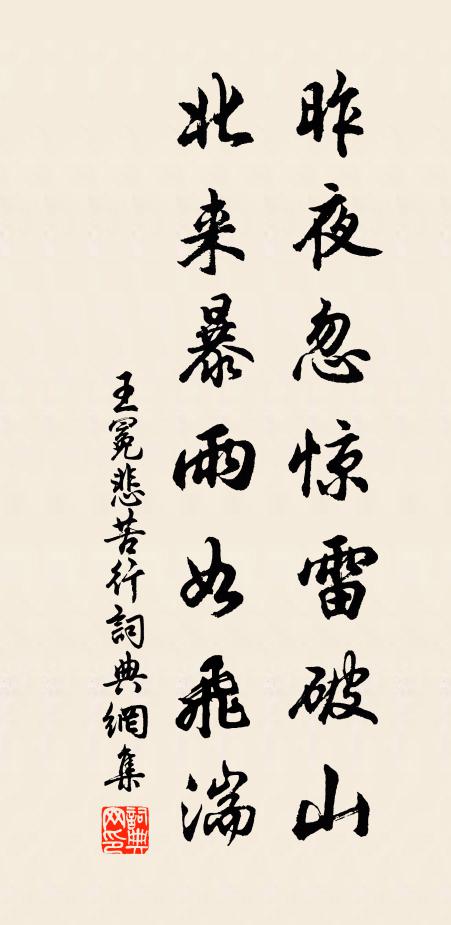 昨夜忽惊雷破山
北来暴雨如飛湍
王冕悲苦行詞典網集
詞典網印